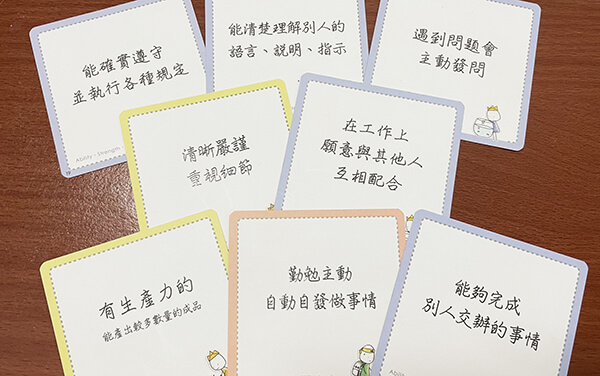 能確實遵守
並執行各種規定
Ability · Strength
能清楚理解別人的
語言、說明、指示
遇到問題會
主動發問
清晰嚴謹
重視細節
在工作上
願意與其他人
互相配合
有生產力的
能產出較多數量的成品
勤勉主動
自動自發做事情
能夠完成
別人交辦的事情